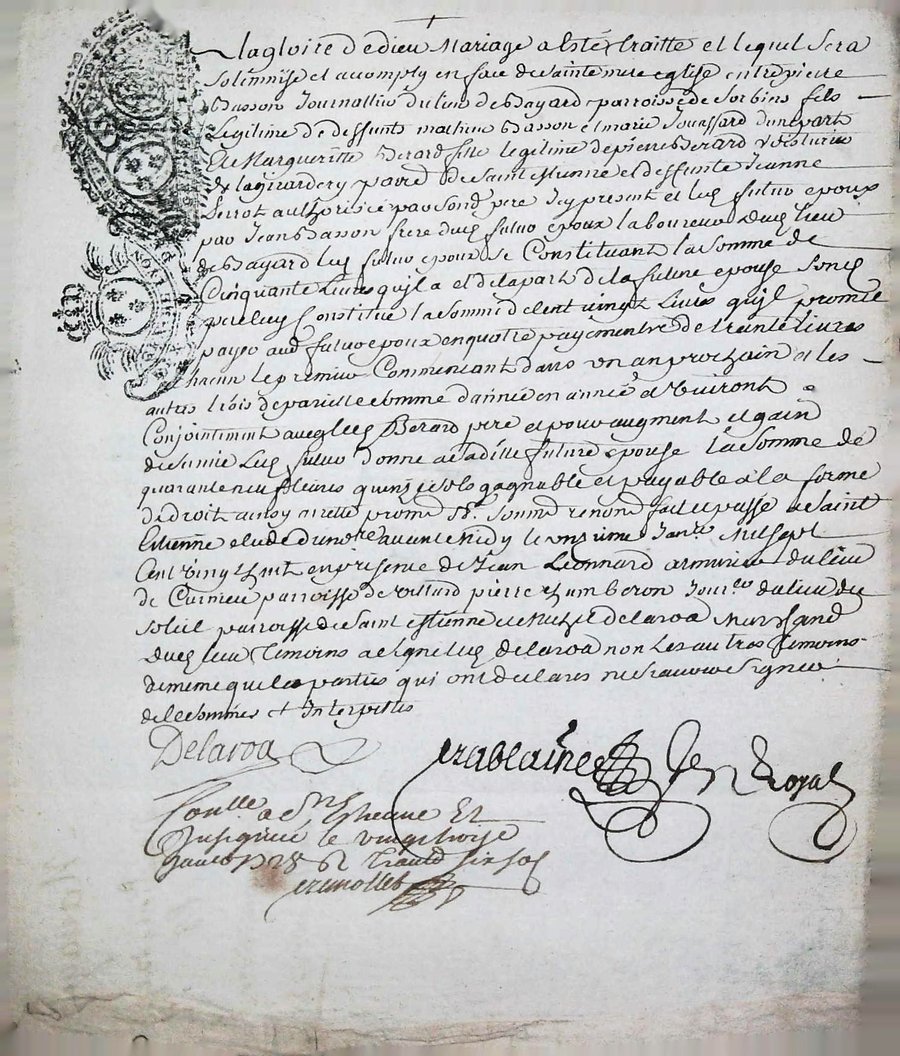 A la gloire de dieu Mariage a Esté traitté et lequel Sera
Solemnisé et acomply en face de sainte mere eglise entre pierre
Basson Journallier du lieu de Bayard parroisse de Sorbins fils
Legitime de deffunts mathieu Basson et marie Jouassard d'une part
Et Margueritte Berard fille legitime de pierre Berard
de la girardery parr de Saint Etienne et deffunte Jeanne
Serrot authorisée par son d pere Icy present et led futur epoux
par Jean Basson frere dud futur epoux laboureur dud lieu
de Bayard led futur epoux Se Constituant la Somme de
Cinquante Livres qu'il a et de la part de la future epouse Sond
pere luy Constitue la Somme de Cent vingt Livres qu'il promet
payer aud futur epoux en quatre payements de trente livres
Chacun le premier Commencant dans un an prochain et les
autres trois de pareille somme d'année en année
Conjointement avec led Berard pere et pour augment et gain
de survie Led futur donne a laditte future epouse la Somme de
quarante neuf livres quinze sols gagnable et payable a la forme
de droit ainsy arretté promis renoncé fait et passé a Saint
Etienne etude du notre avant midy le onzieme Janv. Mil sept
Cent vingt huit en presence de Jean Leonnard armurier du lieu
de Curnieu parroisse de villard pierre Chamberon Jour. du lieu du
Soleil parroisse de Saint Estienne et delaroa Marchand
dud lieu temoins a Signé led delaroa non Les autres temoins
de meme que les parties qui ont declarés ne Scavoir Signer
de ce sommés et Interpellés
Delaroa
Royal
Conlle a St Etienne Et
le vingt troise
Janvier 1728 Six Sols